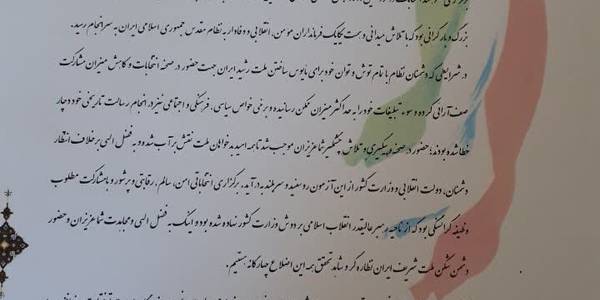 بزرگ و بار گرانی بود که با تلاش میدانی و همت یکایک فرمانداران مومن، انقلابی و وفادار به نظام مقدس جمهوری اسلامی ایران به سرانجام رسید.
در شرایطی که دشمنان نظام با تمام توش و توان خود برای مایوس ساختن ملت رشید ایران جهت حضور در صحنه انتخابات و کاهش میزان مشارکت
صف آرائی کرده و سوء تبلیغات خود را به حداکثر میزان ممکن رسانده و برخی خواص سیاسی، فرهنگی و اجتماعی نیز در انجام رسالت تاریخی خود دچار
خطا شده بودند؛ حضور در صحنه و پیگیری و تلاش چشمگیر شما عزیزان موجب شد تا همه امید بدخواهان ملت نقش بر آب شده و به فضل الهی بر خلاف انتظار
دشمنان، دولت انقلابی و وزارت کشور از این آزمون رو سفید و سربلند در آید. برگزاری انتخاباتی امن، سالم، رقابتی و پرشور و با مشارکت مطلوب
وظیفه گرانسنگی بود که از ناحیه رهبر عالیقدر انقلاب اسلامی بر دوش وزارت کشور نهاده شده بود و اینک به فضل الهی و مجاهدت شما عزیزان و حضور
دشمن شکن ملت شریف ایران نظاره گر و شاهد تحقق همه این اضلاع چهارگانه هستیم.